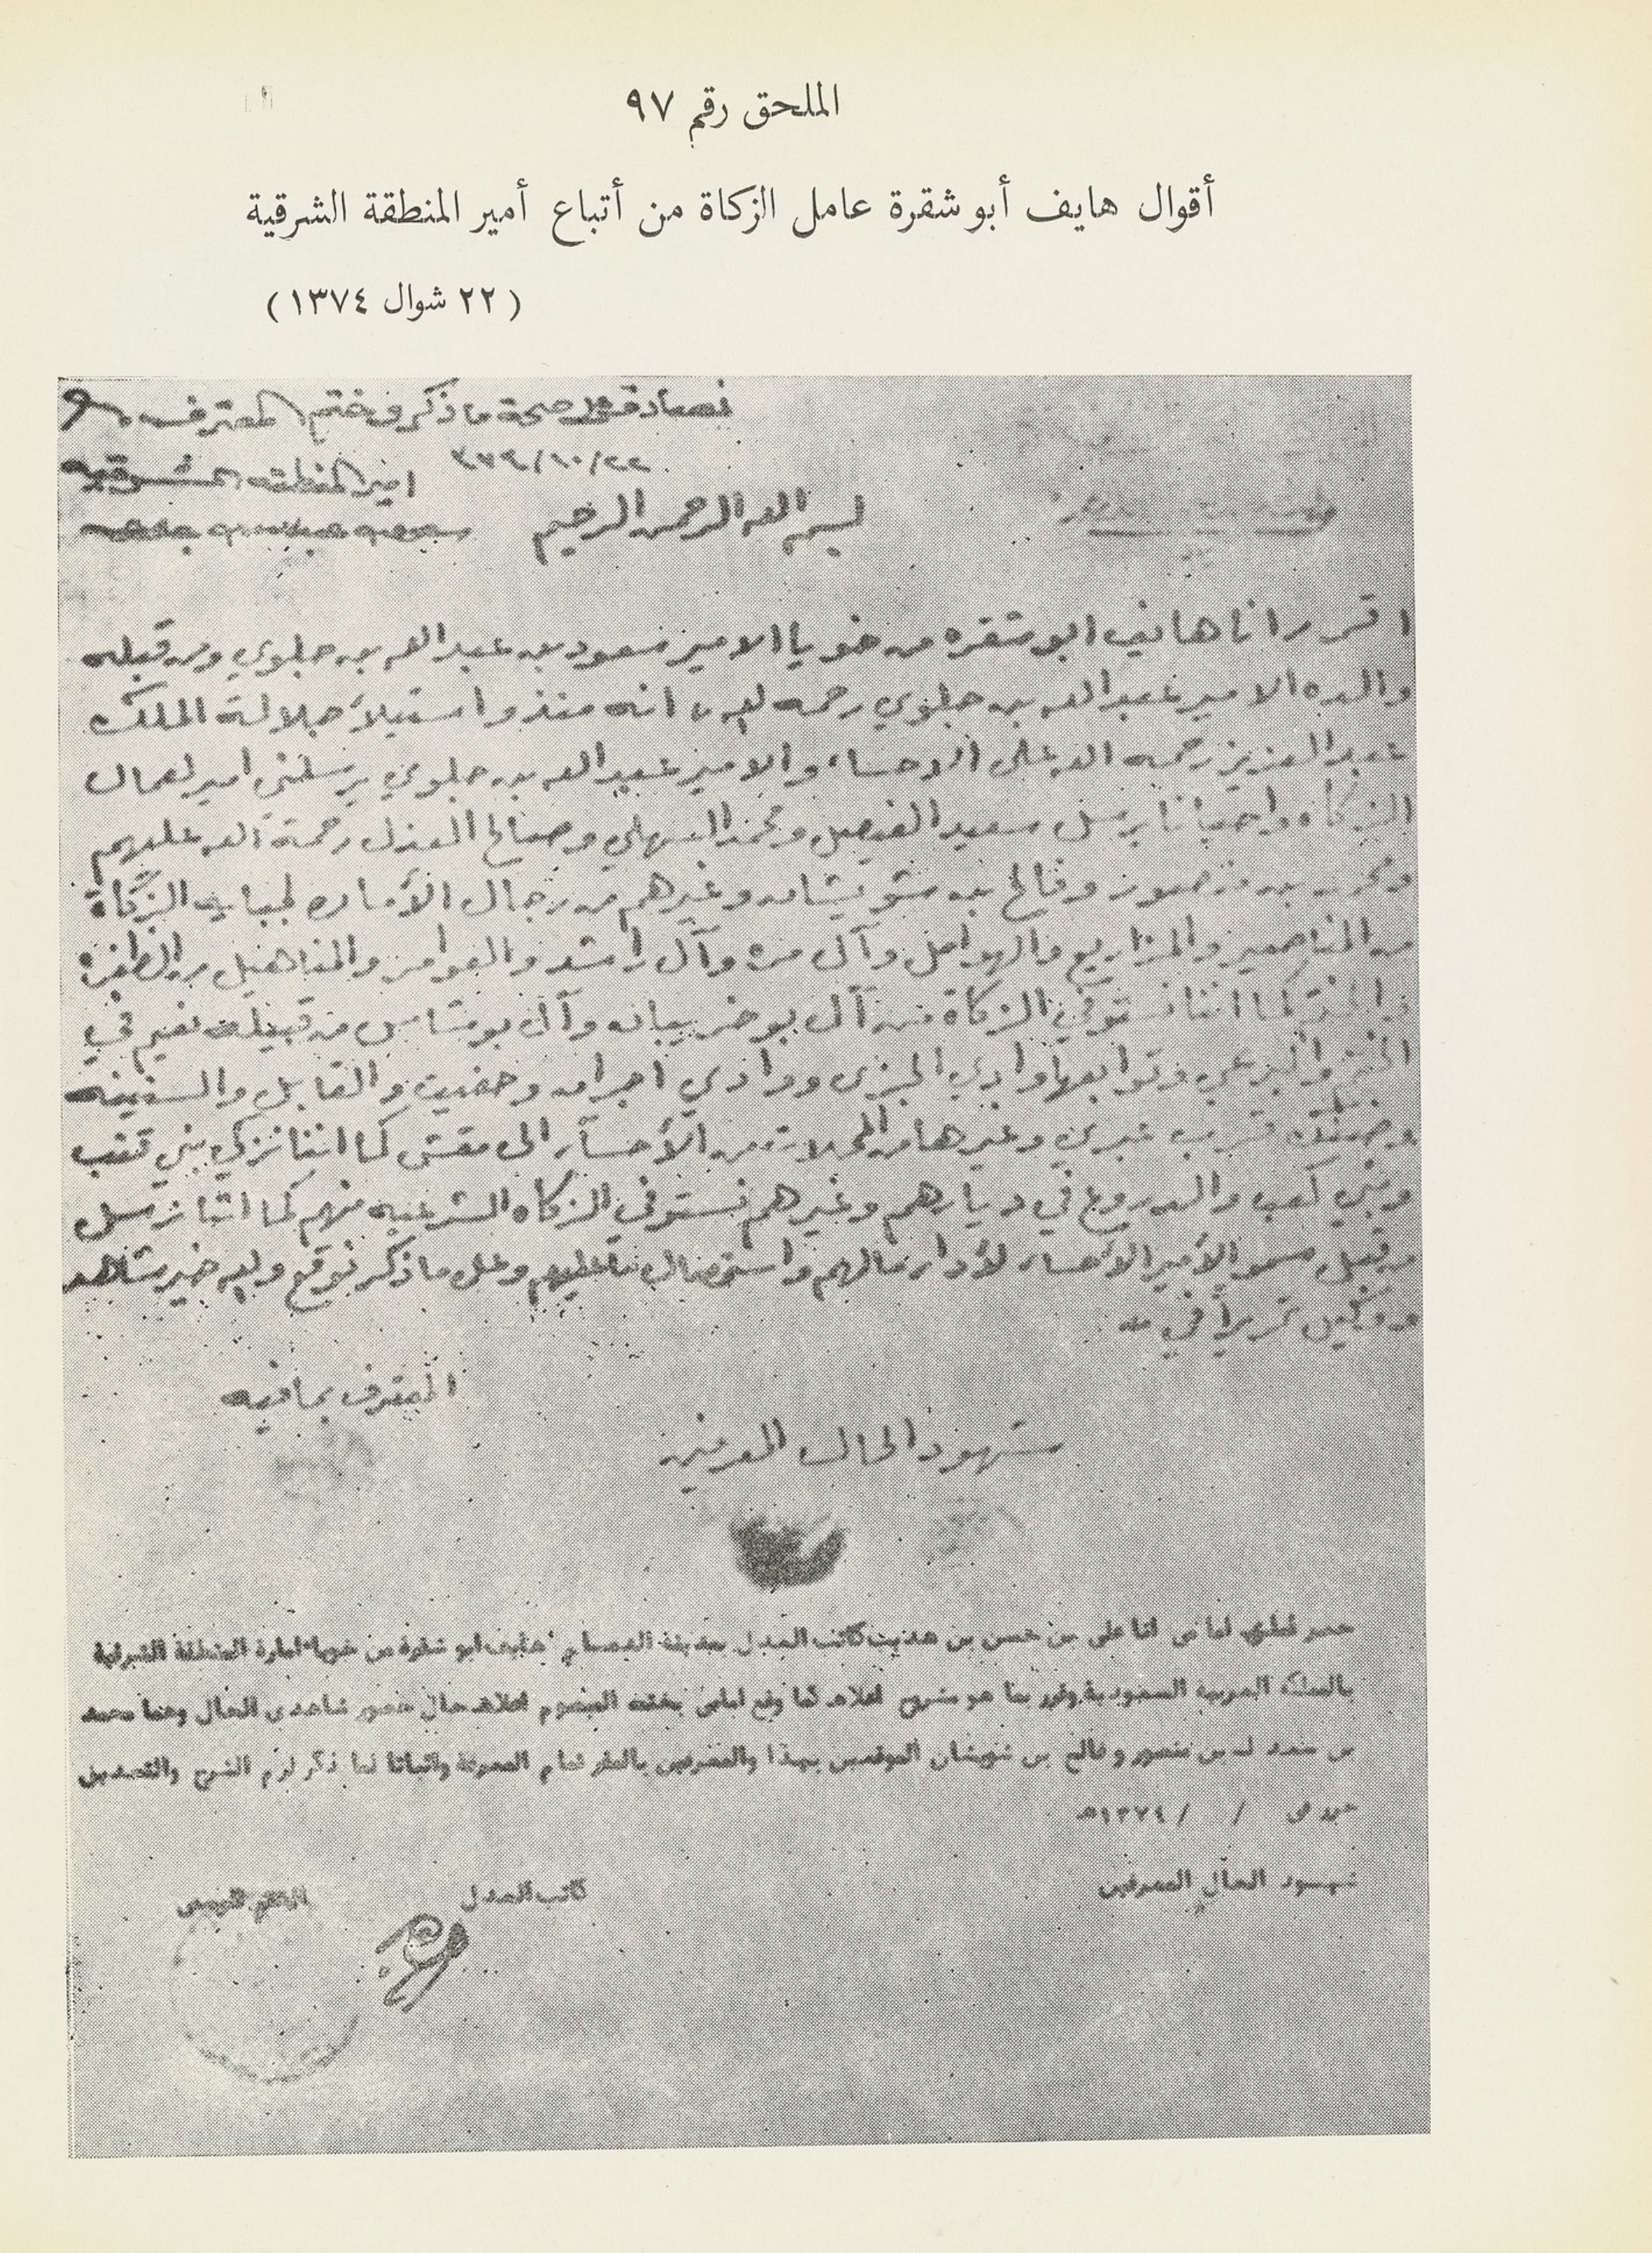 الملحق رقم ٩٧
أقوال هايف أبو شقرة عامل الزكاة من أتباع أمير المنطقة الشرقية
(٢٢ شوال ١٣٧٤)
نصادق على صحة ما ذكر وختم المعترف
امير المنطقه الشرقيه
سعود بن عبدالله بن جلوي
بسم الله الرحمن الرحيم
اقرر انا هايف ابو شقره من خويا الامير سعود بن عبدالله بن جلوي ومن قبله
والده الامير عبدالله بن جلوي رحمه الله انه منذ واستيلأ جلالة الملك
عبدالعزيز رحمه الله على الاحساء والامير عبدالله بن جلوي يرسلني امير لعمال
الزكاه واحيانا يرسل سعيد الفيصل ومحمد السهلي وصالح العذل رحمة الله عليهم
ومحمد بن منصور وفالح بن شويشان وغيرهم من رجال الأماره لجبايه الزكاة
من المناصير والمزاريع والهوامل وآل مره وآل راشد والعوامر والمناهيل من الظفره
كما اننا نستوفي الزكاة من آل بو خريبان وآل بو شامس من قبيلة نعيم في
والبريمي وتوابعها وادي الجزى ووادي اجران وحفيت والقابل والسنينه
وضنك قريب عبري وغيرها من المحلات من الأحساء الى مقشن كما اننا نزكي بني قتب
وبني كعب والدروع في ديارهم وغيرهم نستوفي الزكاه الشرعيه منهم كما اننا نرسل
من قبل سمو الأمير الأحساء لأداء مالهم واستحصال ما عليهم وعلى ما ذكر نوقع والله خير شاهد
ووكيل تحريراً في
المعترف بما فيه
شهود الحال المعرفين
حضر لدي انا علي بن حسن بن هديب كاتب العدل بمدينة الدمام هايف ابو شقرة من خويا امارة المنطقة الشرقية
بالمملكة العربية السعودية وقرر بما هو مشروح اعلاه كما وقع امامي بختمه المبصوم اعلاه حال حضور شاهدي الحال وهما محمد
بن منصور وفالح بن شويشان الموقعين بهذا والمعرفين بالمقر تمام المعرفة واثباتا لما ذكر لزم الشرح والتصديق
في / / ١٣٧٤هـ
شهود الحال المعرفين
كاتب العدل
الختم الرسمي